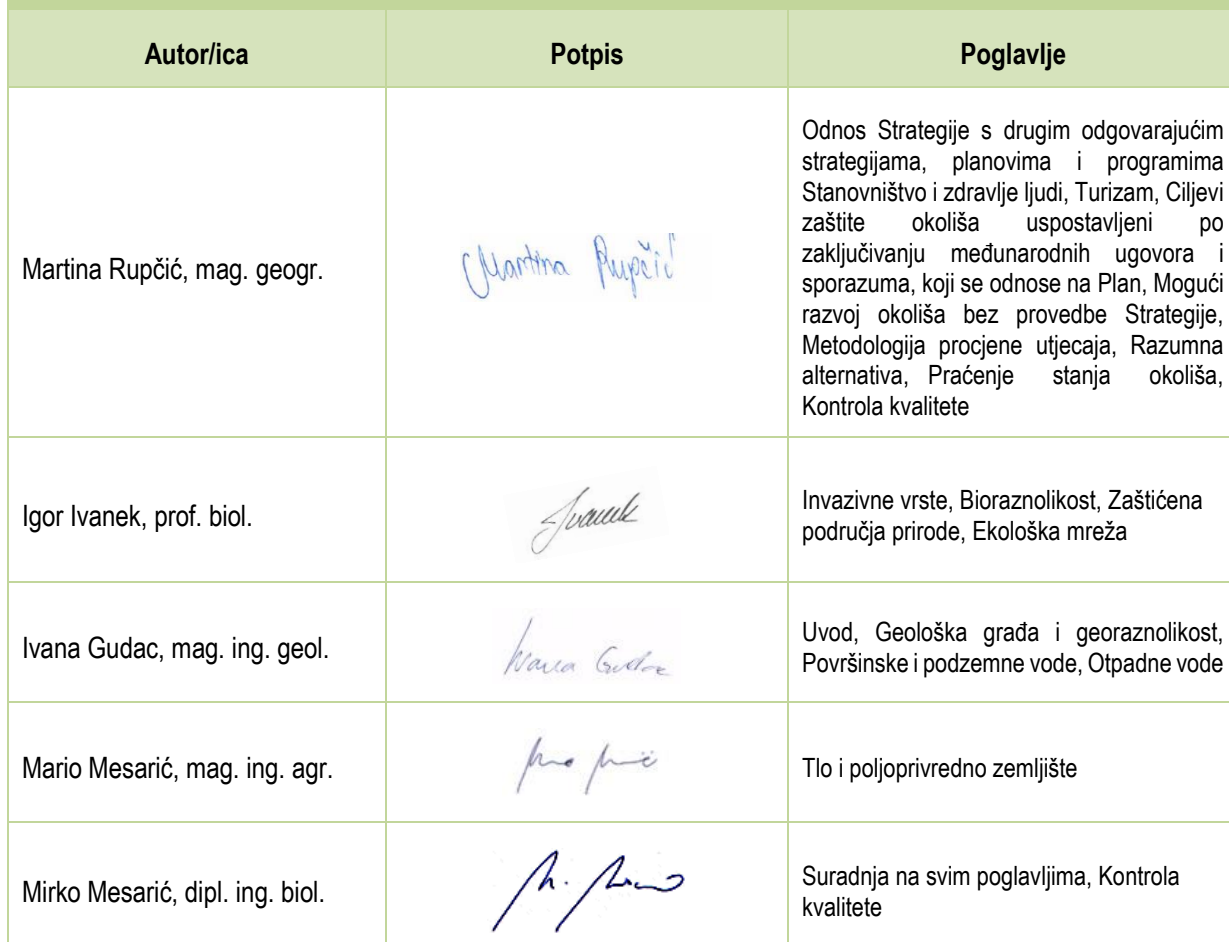 Autor/ica Potpis Poglavlje
Martina Rupčić, mag. geogr.
Martina Rupčić
Odnos Strategije s drugim odgovarajućim
strategijama, planovima i programima
Stanovništvo i zdravlje ljudi, Turizam, Ciljevi
zaštite okoliša uspostavljeni po
zaključivanju međunarodnih ugovora i
sporazuma, koji se odnose na Plan, Mogući
razvoj okoliša bez provedbe Strategije,
Metodologija procjene utjecaja, Razumna
alternativa, Praćenje stanja okoliša,
Kontrola kvalitete
Igor Ivanek, prof. biol.
Ivanek
Invazivne vrste, Bioraznolikost, Zaštićena
područja prirode, Ekološka mreža
Ivana Gudac, mag. ing. geol.
Ivana Gudac
Uvod, Geološka građa i georaznolikost,
Površinske i podzemne vode, Otpadne vode
Mario Mesarić, mag. ing. agr.
Tlo i poljoprivredno zemljište
Mirko Mesarić, dipl. ing. biol.
Suradnja na svim poglavljima, Kontrola
kvalitete